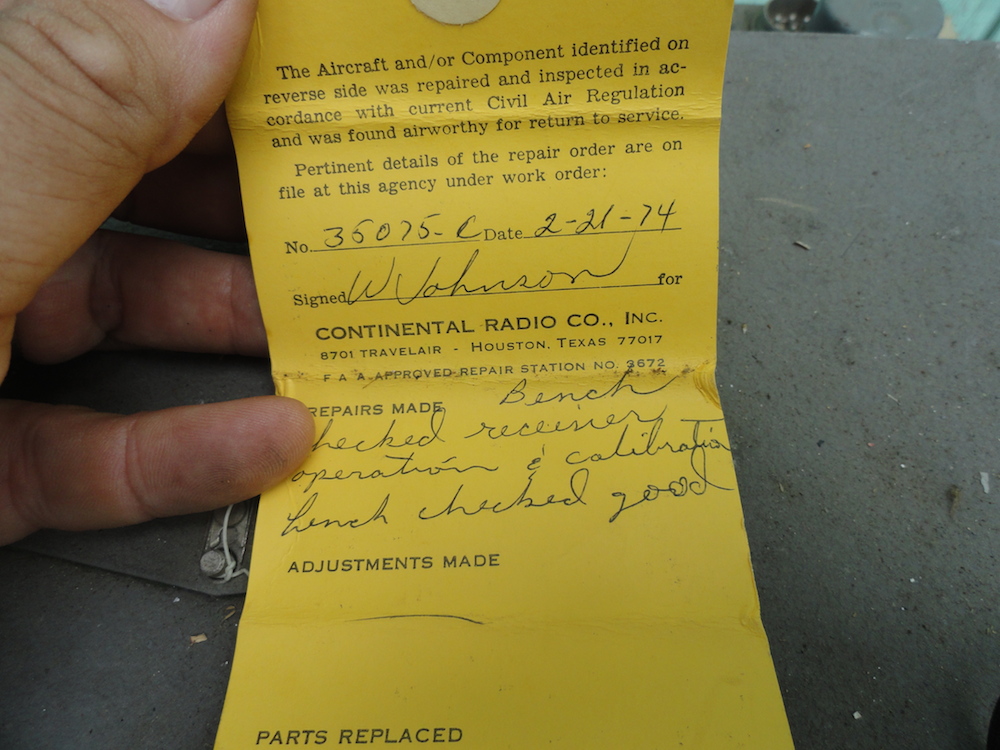 The Aircraft and/or Component identified on
reverse side was repaired and inspected in ac-
cordance with current Civil Air Regulation
and was found airworthy for return to service.
Pertinent details of the repair order are on
file at this agency under work order:
No. 35075-C Date 2-21-74
Signed W Johnson for
CONTINENTAL RADIO CO., INC.
8701 TRAVELAIR - HOUSTON, TEXAS 77017
F A A APPROVED REPAIR STATION NO. 3672
REPAIRS MADE Bench
checked receiver
operation & calibration
bench checked good
ADJUSTMENTS MADE
PARTS REPLACED